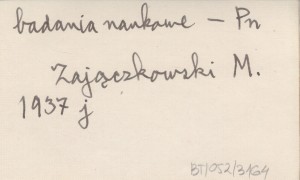 badania naukowe – Pn
Zajączkowski M.
1937 j
BT/052/3164